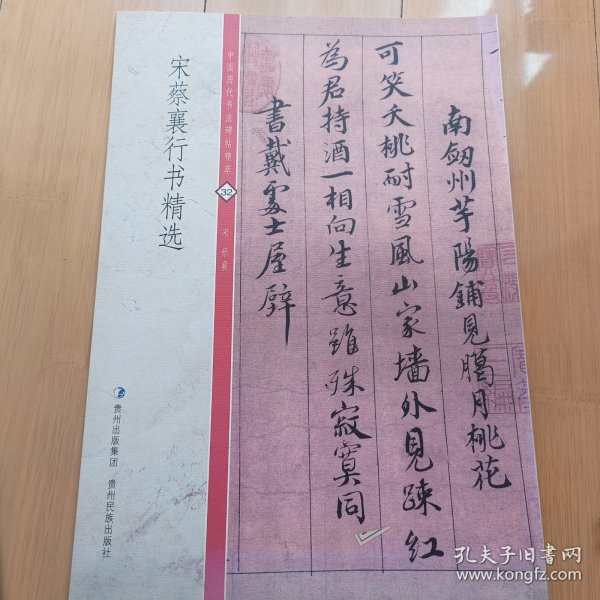 宋蔡襄行书精选
贵州出版集团 贵州民族出版社
中国历代书法碑帖精萃
32
宋 蔡襄
南劔州芋陽鋪見臈月桃花
可笑夭桃耐雪風山家墻外見踈紅
為君持酒一相向生意雖殊寂寞同
書戴處士屋壁
孔夫子旧书网
www.kongfz.com